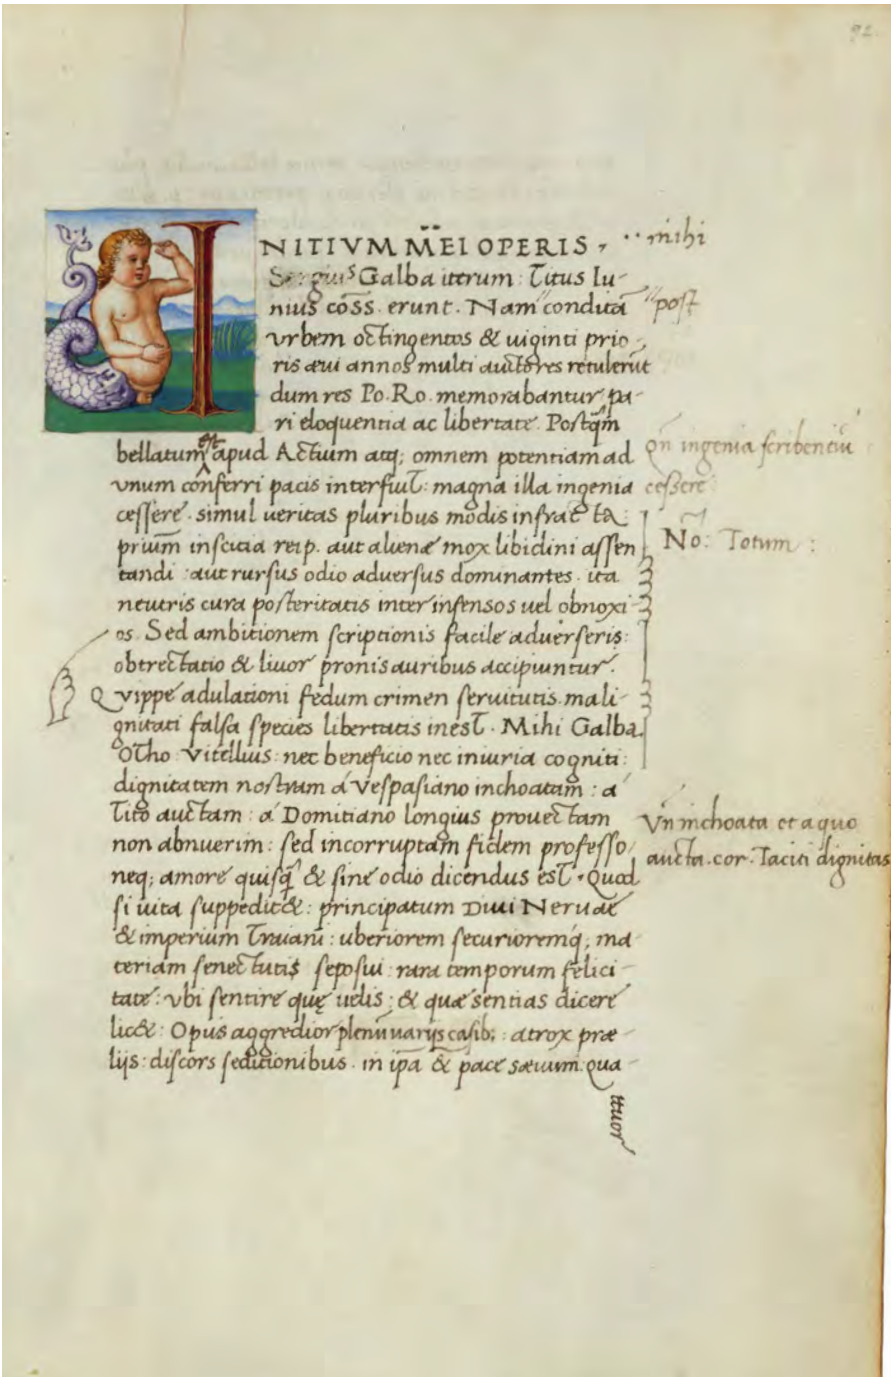 92.
INITIVM MEI OPERIS, ··mihi
Sergius Galba iterum: Titus Iu-
nius co͞ss. erunt. Nam conditā "post
vrbem octingentos & uiginti prio-
ris æui annos multi auctores retulerūt
dum res Po. Ro. memorabantur pa-
ri eloquentia ac libertate. Postq̄m
bellatum est apud Actium atq; omnem potentiam ad
vnum conferri pacis interfuit: magna illa ingenia
cessere. simul ueritas pluribus modis infracta
priūm inscitia reip. aut alienæ mox libidini assen
tandi: aut rursus odio adversus dominantes. ita
neutris cura posteritatis inter infensos uel obnoxi-
os. Sed ambitionem scriptionis facile adverseris:
obtrectatio & liuor pronis auribus accipiuntur.
Qvippe adulationi fedum crimen seruitutis. mali-
gnitati falsa species libertatis inest. Mihi Galba.
Otho Vitellius: nec beneficio nec iniuria cogniti:
dignitatem nostram á Vespasiano inchoatam: a
Tito auctam: á Domitiano longius prouectam
non abnuerim: sed incorruptam fidem professo
neq; amore quisq̄ & sine odio dicendus est. Quod
si uita suppedit&: principatum Diui Neruae
& imperium Traiani: uberiorem securioremq́; ma-
teriam senectutis seposui: rara temporum felici-
tate: vbi sentire quę uelis; & quæ sentias dicere
lic&: Opus aggredior plenū uarijs casib;: atrox præ-
lijs: discors seditionibus. in ip̄a & pace sæuum. qua-
ttuor
Qn̄ ingenia scribentiū
cessere
No: Totum:
Vn̄ inchoata et a quo
aucta. cor. Taciti dignitas